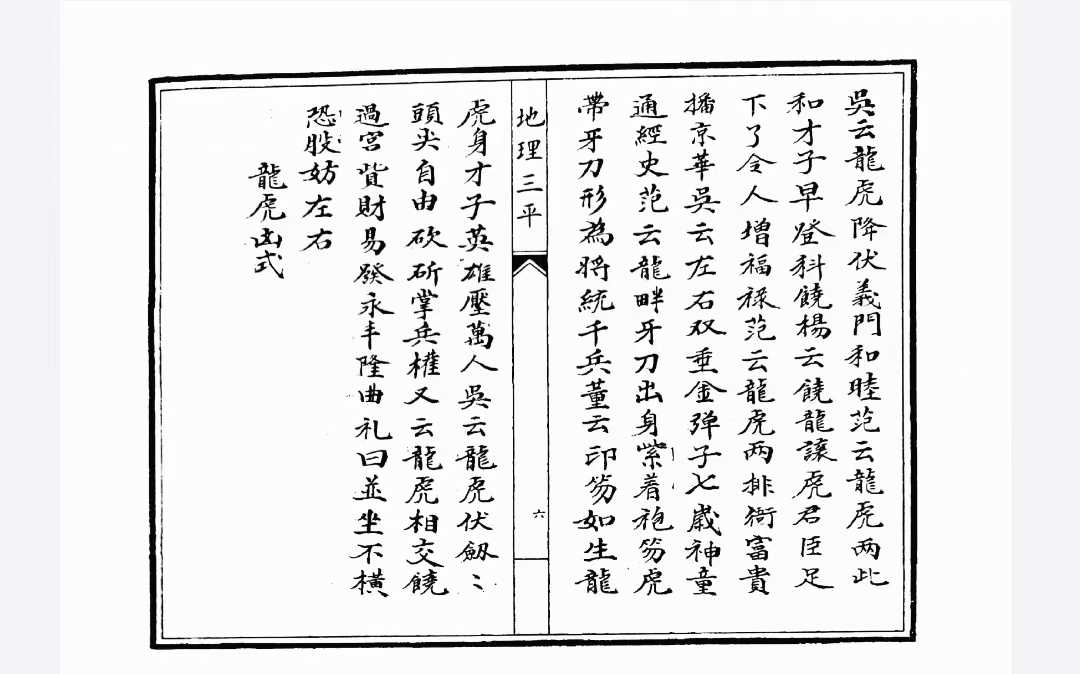 吳云龍虎降伏義門和睦范云龍虎两此
和才子早登科饒楊云饒龍讓虎君臣足
下了令人增福禄范云龍虎两排衙富貴
播京華吳云左右双垂金弹子七歲神童
通經史范云龍畔牙刀出身紫着袍笏虎
帶牙刀形為将統千兵董云印笏如生龍
地理三平
六
虎身才子英雄壓萬人吳云龍虎伏劔〻
頭尖自由砍斫掌兵權又云龍虎相交饒
過宮貲財易發永丰隆曲礼曰並坐不横
恐股妨左右
龍虎凶式